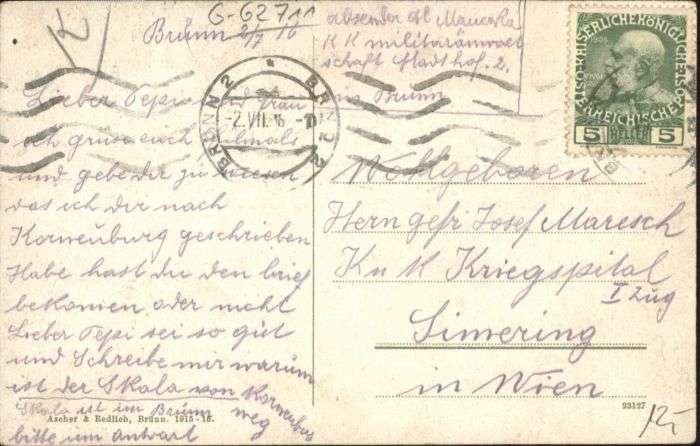 G-62711
12
Brünn 2/7 16
absender
K K militäranwalt
schaft Stadthof. 2.
Brünn
BRÜNN 2 * BRNO 2
-2.VII.16
KAISERLICHE KÖNIGLICHE
ÖSTERREICHISCHE POST
1908
5 HELLER 5
Lieber Pepi und frau
ich grüse euch vilmals
und gebe dir zu wiesen
das ich dir nach
Korneuburg geschrieben
Habe hast du den brief
bekomen oder nicht
Lieber Pepi sei so gut
und Schreibe mir warum
ist der Skala von Korneubg
weg
Skala ist im Brünn
bitte um antwort
Wollgeboren
Hern gefr Josef Maresch
K u K Kriegspital
I Zug
Simering
in Wien
Ascher & Redlich, Brünn. 1915-16.
23127
12,-